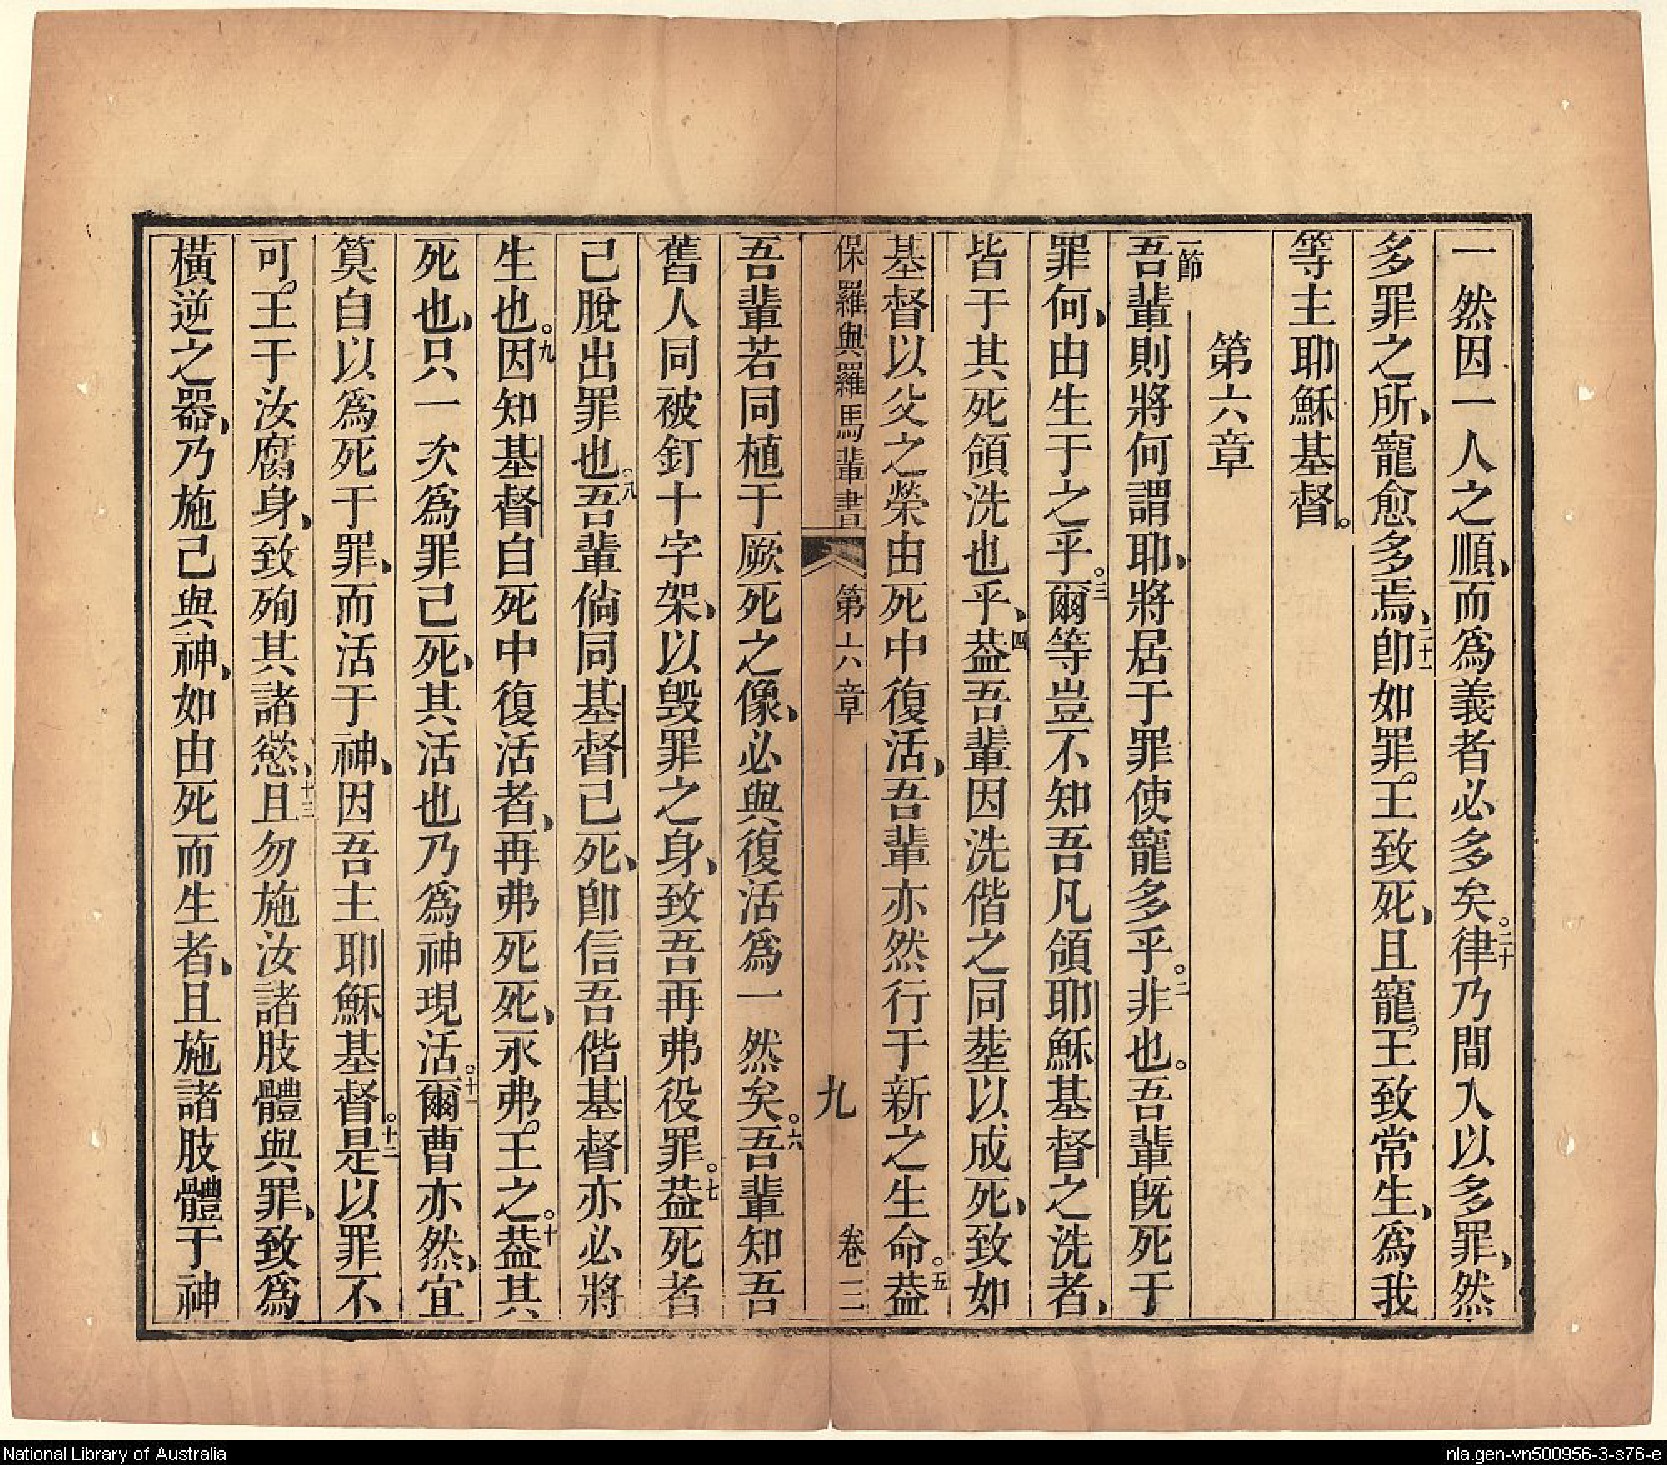 一然因一人之順、而爲義者必多矣。二十律乃間入以多罪、然
多罪之所、寵愈多焉、二十一卽如罪。王致死、且寵。王致常生、爲我
等主耶穌基督。
第六章
一節吾輩則將何謂耶、將居于罪使寵多乎。二非也。吾輩旣死于
罪何、由生于之乎。三爾等豈不知吾凡領耶穌基督之洗者、
皆于其死領洗也乎、四葢吾輩因洗偕之同塟以成死、致如
基督以父之榮由死中復活、吾輩亦然行于新之生命。五葢
保羅與羅馬輩書 第六章 九 卷三
吾輩若同植于厥死之像、必與復活爲一然矣。六吾輩知吾
舊人同被釘十字架、以毀罪之身、致吾再弗役罪。七葢死者
己脫出罪也。八吾輩倘同基督已死、卽信吾偕基督亦必將
生也。九因知基督自死中復活者、再弗死死、永弗。王之。十葢其
死也、只一次爲罪己死、其活也乃爲神現活。十一爾曹亦然、宜
算自以爲死于罪、而活于神、因吾主耶穌基督。十二是以罪不
可。王于汝腐身、致殉其諸慾、十三且勿施汝諸肢體與罪、致爲
橫逆之器、乃施己與神、如由死而生者、且施諸肢體于神
National Library of Australia
nla.gen-vn500956-3-s76-e